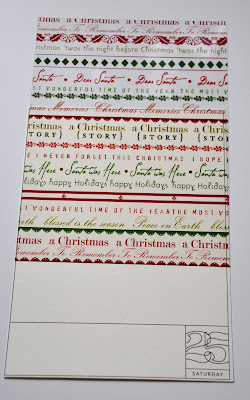 a Christmas a Christmas a Christmas
To Remember To Remember To Remember
'twas the night before Christmas 'twas the night
Dear Santa • Dear Santa • Dear Santa
WONDERFUL TIME OF THE YEAR THE MOST
Christmas Memories Christmas Memories
a Christmas a Christmas a Christmas
{STORY} {STORY} {STORY}
I NEVER FORGET THIS CHRISTMAS I HOPE I
Santa was Here • Santa was Here •
happy Holidays happy Holidays happy Holidays
WONDERFUL TIME OF THE YEAR THE MOST
blessed is the season Peace on Earth blessed
a Christmas a Christmas a Christmas
To Remember To Remember To Remember
25
SATURDAY